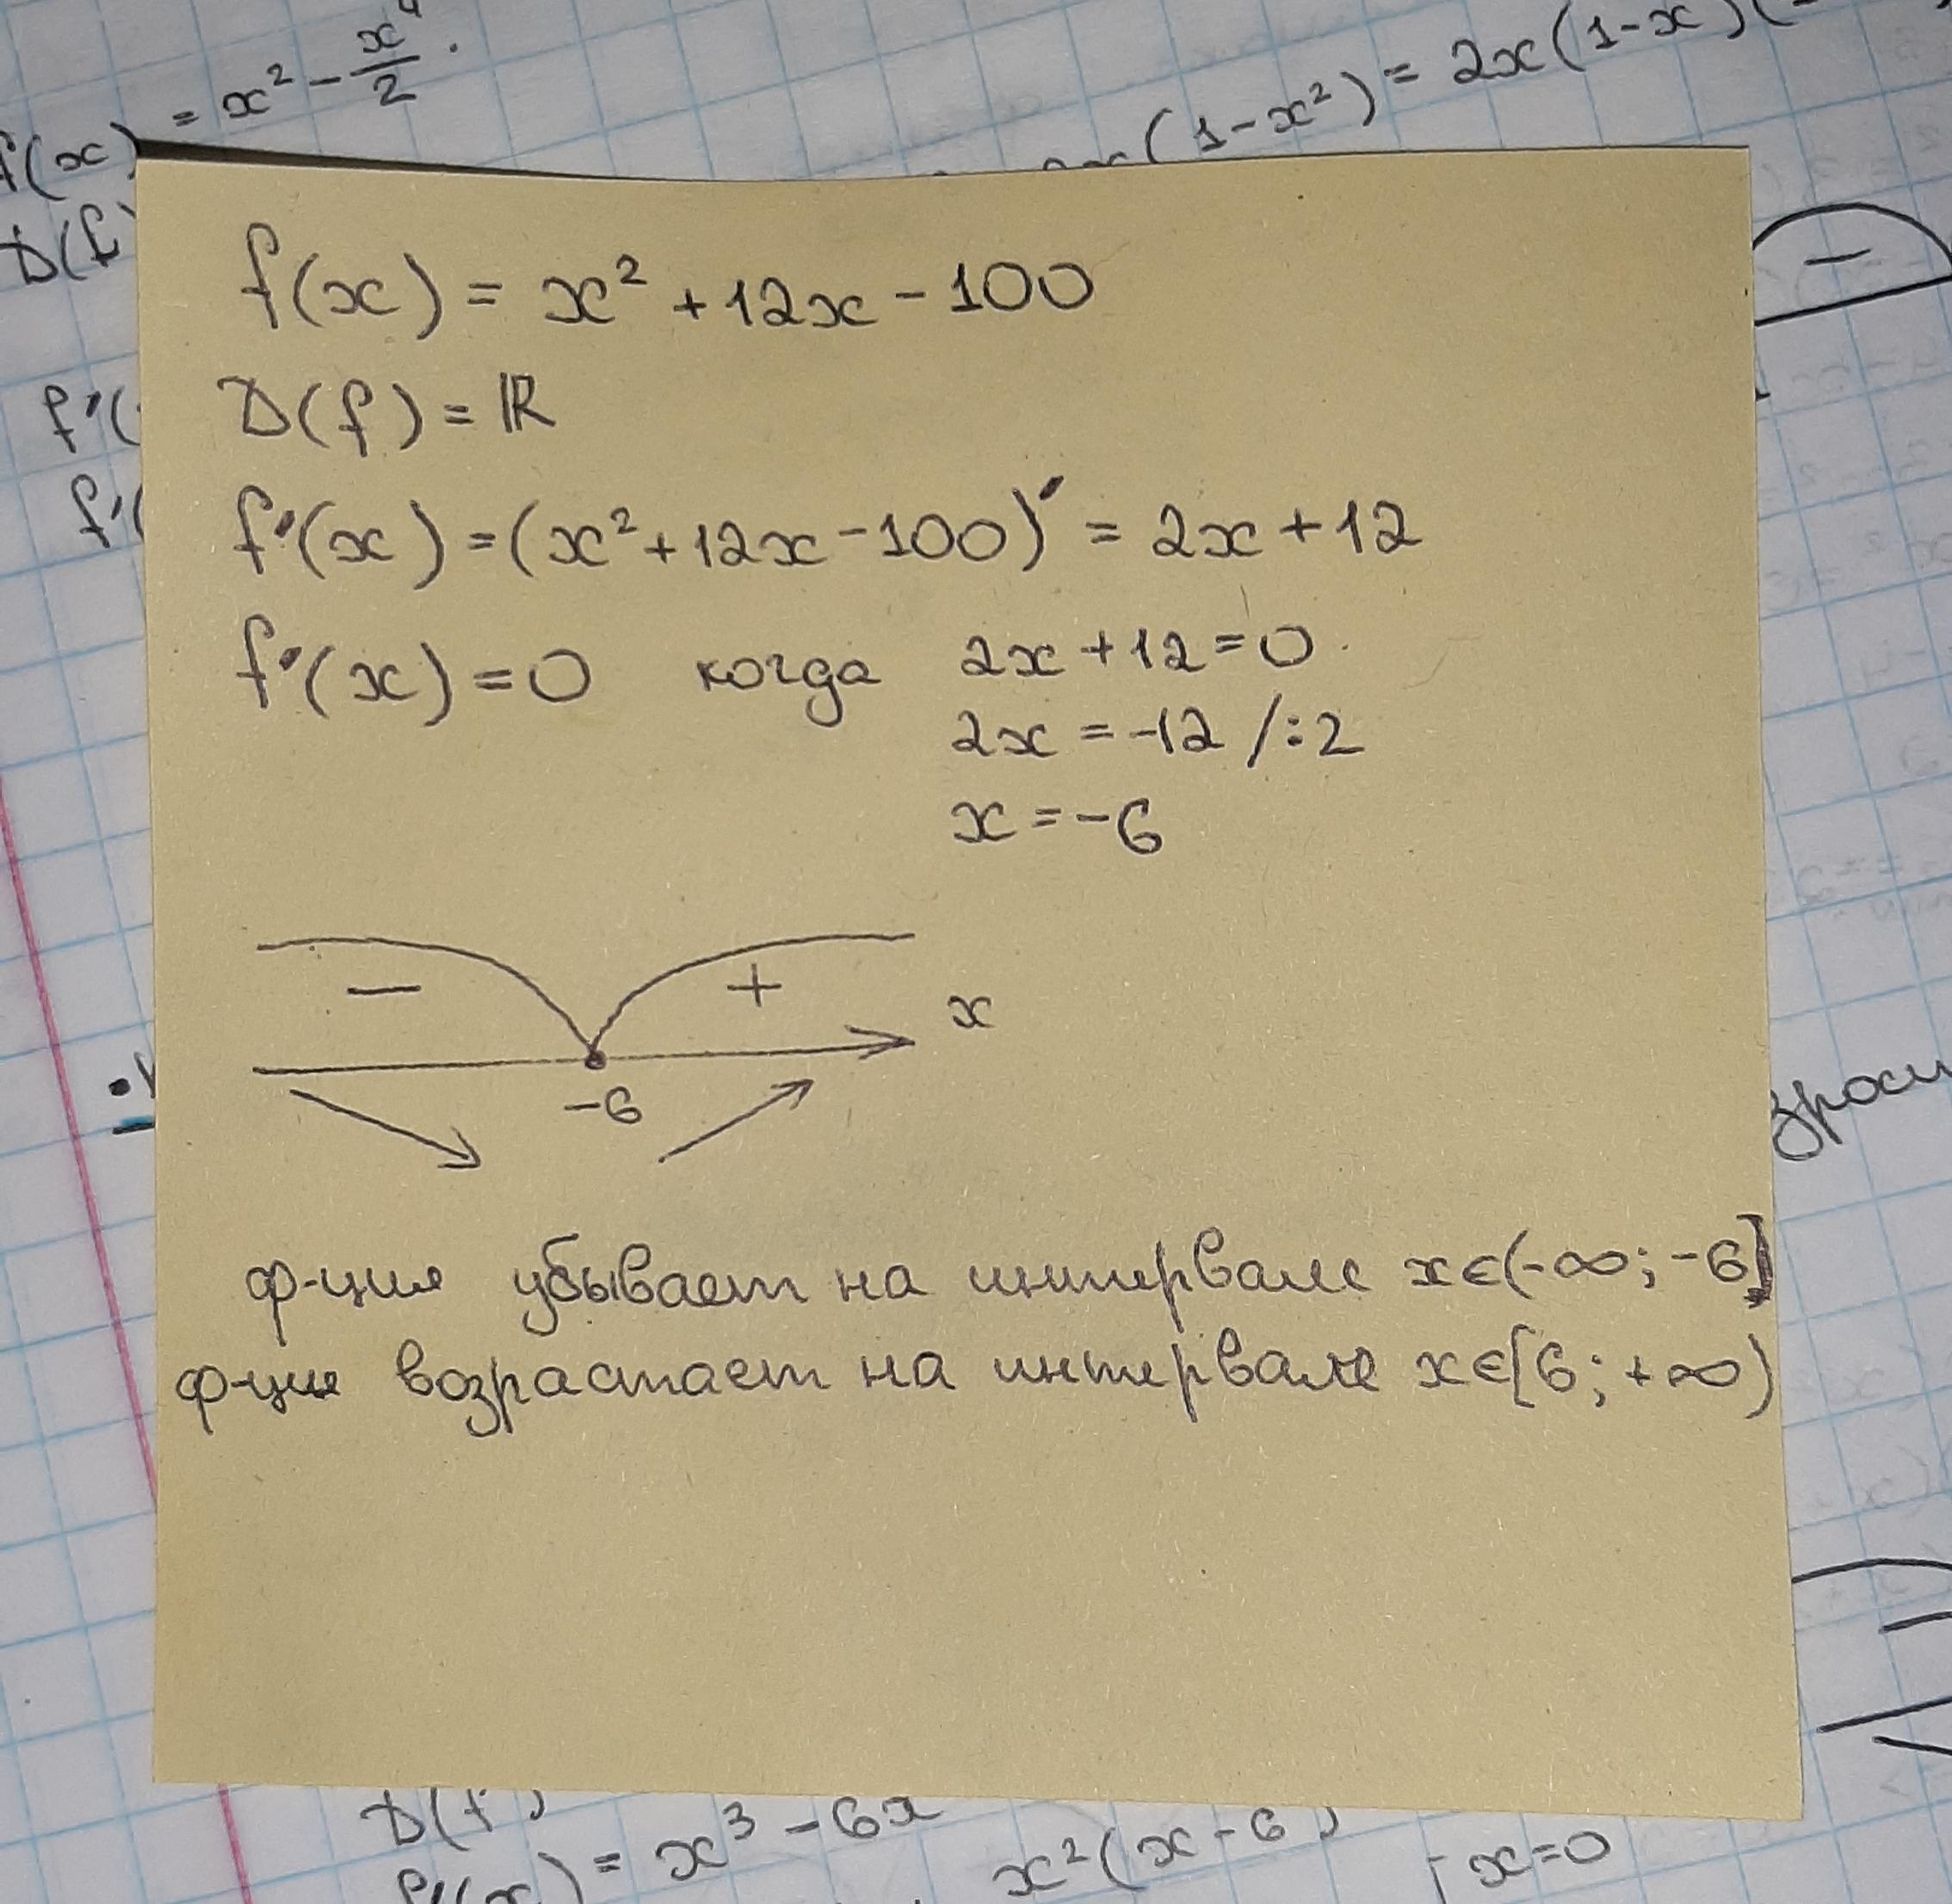 f(x) = x² - x⁴/2.
x(1-x²) = 2x(1-x)(
D(f)
f'(
f'(
f(x) = x² + 12x - 100
D(f) = ℝ
f'(x) = (x² + 12x - 100)' = 2x + 12
f'(x) = 0 когда 2x + 12 = 0
2x = -12 /:2
x = -6
- + x
-6
ф-ция убывает на интервале x∈(-∞; -6]
ф-ция возрастает на интервале x∈[6; +∞)
D(f)
f'(x) = x³ - 6x
x²(x-6)
x=0